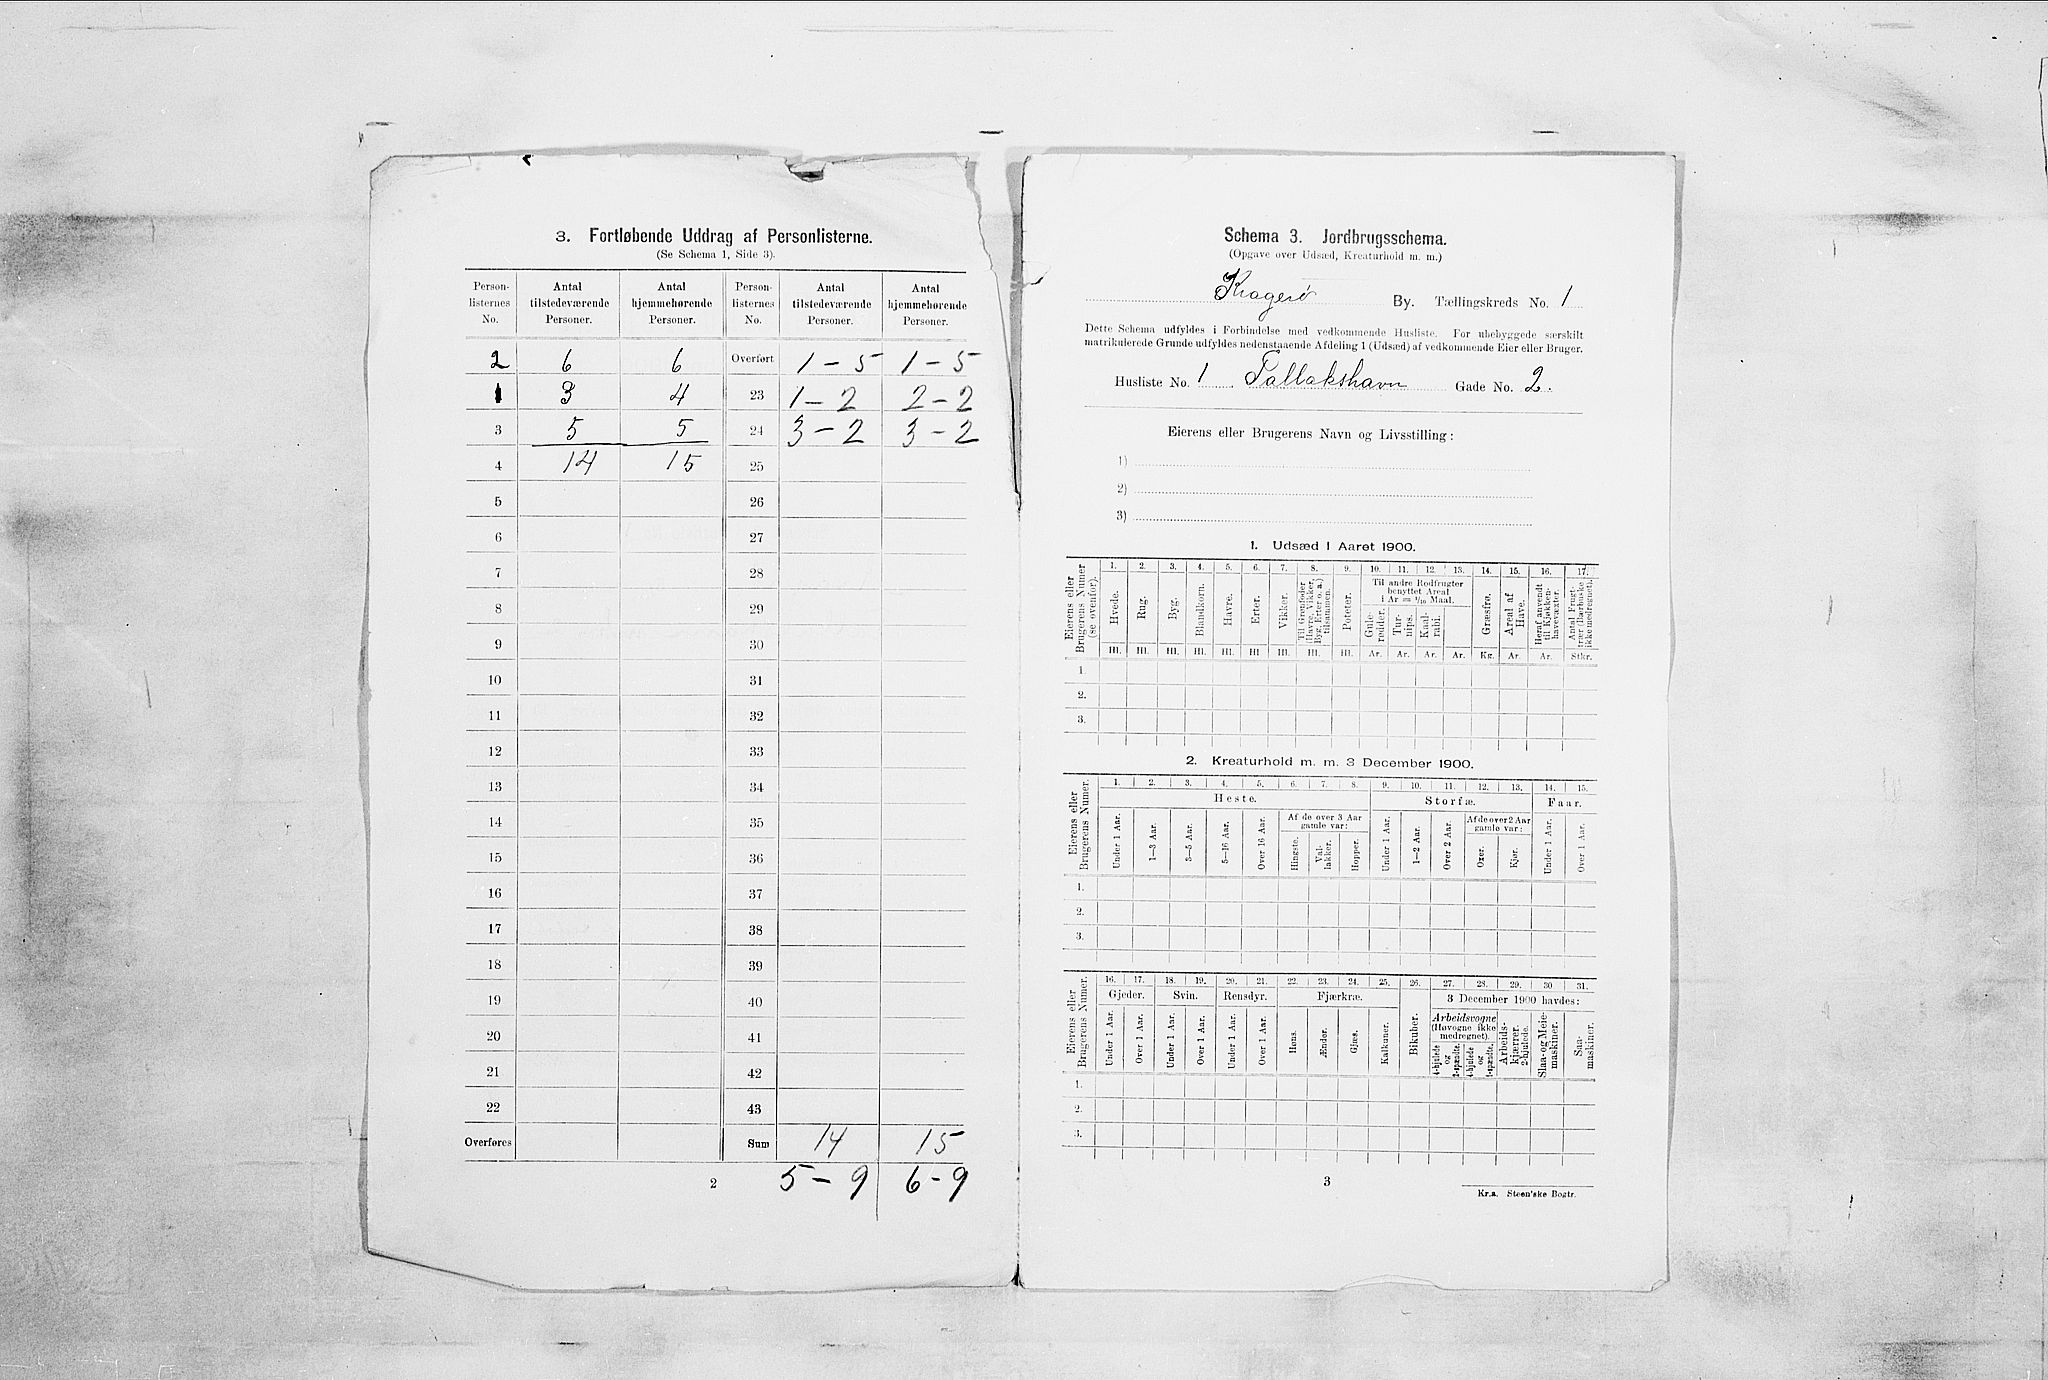 3. Fortløbende Uddrag af Personlisterne.
(Se Schema 1, Side 3).
Person-listernes No. | Antal tilstedeværende Personer. | Antal hjemmehørende Personer. | Person-listernes No. | Antal tilstedeværende Personer. | Antal hjemmehørende Personer.
2 | 6 | 6 | Overført | 1 – 5 | 1 – 5
1 | 3 | 4 | 23 | 1 – 2 | 2 – 2
3 | 5 | 5 | 24 | 3 – 2 | 3 – 2
4 | 14 | 15 | 25
5 | 26
6 | 27
7 | 28
8 | 29
9 | 30
10 | 31
11 | 32
12 | 33
13 | 34
14 | 35
15 | 36
16 | 37
17 | 38
18 | 39
19 | 40
20 | 41
21 | 42
22 | 43
Overføres | Sum | 14 | 15
2 | 5 – 9 | 6 – 9
Schema 3. Jordbrugsschema.
(Opgave over Udsæd, Kreaturhold m. m.)
Kragerø By. Tællingskreds No. 1
Dette Schema udfyldes i Forbindelse med vedkommende Husliste. For ubebyggede særskilt
matrikulerede Grunde udfyldes nedenstaaende Afdeling 1 (Udsæd) af vedkommende Eier eller Bruger.
Husliste No. 1 Tallakshavn Gade No. 2.
Eierens eller Brugerens Navn og Livsstilling:
1)
2)
3)
1. Udsæd i Aaret 1900.
Eierens eller Brugerens Numer (se ovenfor).
1. 2. 3. 4. 5. 6. 7. 8. 9. 10. 11. 12. 13. 14. 15. 16. 17.
Til andre Rodfrugter benyttet Areal i Ar = 1/10 Maal.
Hvede. | Rug. | Byg. | Blandkorn. | Havre. | Erter. | Vikker. | Til Grønfoder (Havre, Vikker, Byg, Erter o. a.) tilsammen. | Poteter. | Gule-rødder. | Tur-nips. | Kaal-rabi. | Græsfrø. | Areal af Have. | Heraf anvendt til Kjøkken-havevæxter. | Antal Frugt-trær (Bærbuske ikke medregnet).
Hl. Hl. Hl. Hl. Hl. Hl Hl. Hl. Hl. Ar. Ar. Ar. Ar. Kg. Ar. Ar. Stkr.
1.
2.
3.
2. Kreaturhold m. m. 3 December 1900.
Eierens eller Brugerens Numer.
1. 2. 3. 4. 5. 6. 7. 8. 9. 10. 11. 12. 13. 14. 15.
Heste. | Storfæ. | Faar.
Af de over 3 Aar gamle var: | Af de over 2 Aar gamle var:
Under 1 Aar. | 1—3 Aar. | 3—5 Aar. | 5—16 Aar. | Over 16 Aar. | Hingste. | Val-lakker. | Hopper. | Under 1 Aar. | 1—2 Aar. | Over 2 Aar. | Oxer. | Kjør. | Under 1 Aar. | Over 1 Aar.
1.
2.
3.
Eierens eller Brugerens Numer.
16. 17. 18. 19. 20. 21. 22. 23. 24. 25. 26. 27. 28. 29. 30 31.
Gjeder. | Svin. | Rensdyr. | Fjærkræ. | 3 December 1900 havdes:
Arbeidsvogne (Høvogne ikke medregnet).
Under 1 Aar. | Over 1 Aar. | Under 1 Aar. | Over 1 Aar. | Under 1 Aar. | Over 1 Aar. | Høns. | Ænder. | Gjæs. | Kalkuner. | Bikuber. | 4-hjulede og 2-spændte. | 4-hjulede og 1-spændte. | Arbeids-kjærrer. 2-hjulede. | Slaa- og Meie-maskiner. | Saa-maskiner.
1.
2.
3.
3
Kr.a. Steen'ske Bogtr.